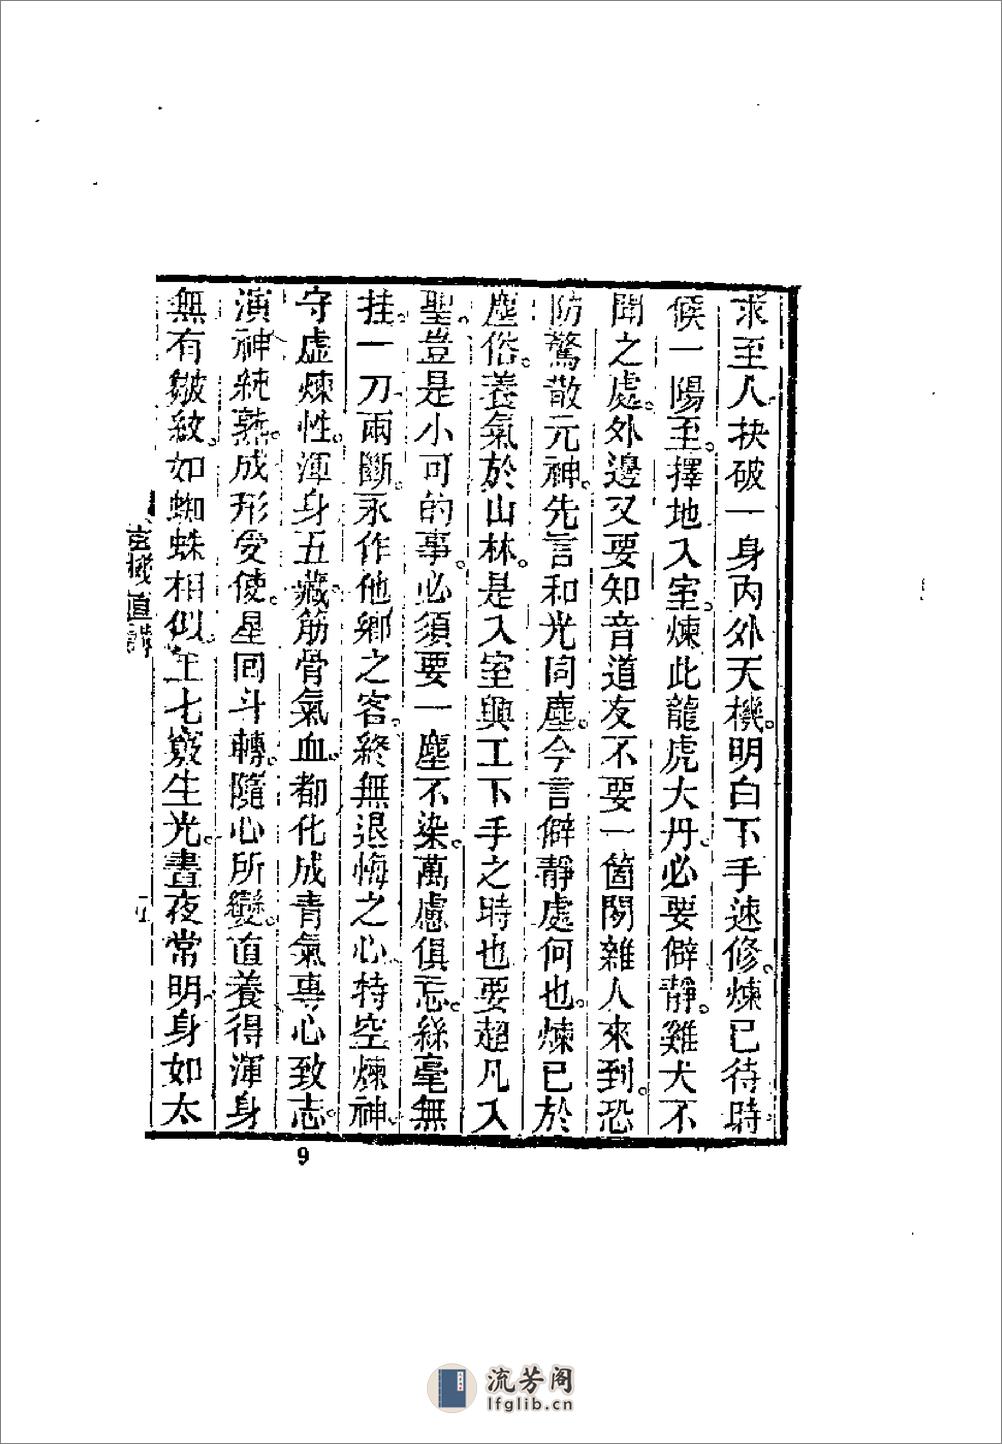 求至人抉破一身內外天機。明白下手速修。煉己待時
候一陽至。擇地入室。煉此龍虎大丹。必要僻靜。雞犬不
聞之處。外邊又要知音道友不要一箇閑雜人來到。恐
防驚散元神。先言和光同塵。今言僻靜處何也。煉己於
塵俗。養氣於山林。是入室興工下手之時也要超凡入
聖。豈是小可的事。必須要一塵不染。萬慮俱忘。絲毫無
挂。一刀兩斷。永作他鄉之客。終無退悔之心。特空煉神。
守虛煉性。渾身五藏。筋骨氣血。都化成青氣。專心致志。
演神純熟。成形受使。星回斗轉。隨心所變。直養得渾身
無有皺紋。如蜘蛛相似。上七竅生光。晝夜常明。身如太
玄機直講
五
9
流芳阁
lfglib.cn